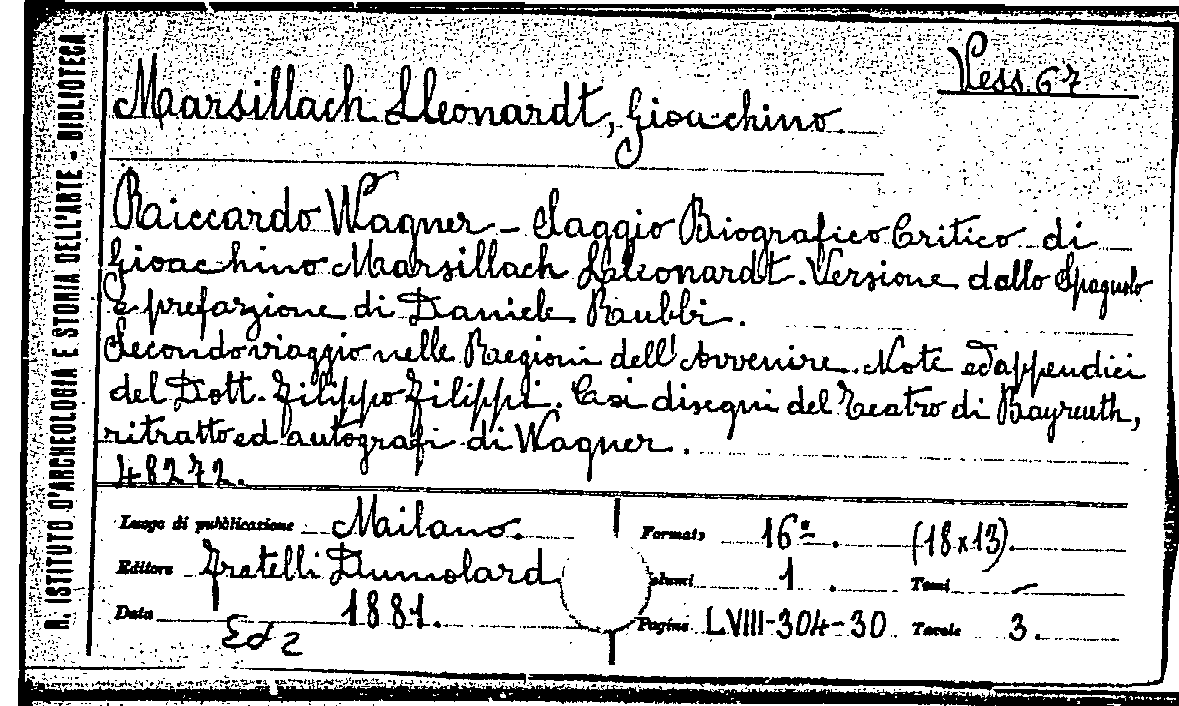 R. ISTITUTO D'ARCHEOLOGIA E STORIA DELL'ARTE - BIBLIOTECA
Vess. 67
Marsillach Lleonardt, Gioachino.
Riccardo Wagner - Saggio Biografico Critico di
Gioachino Marsillach Lleonardt. Versione dallo Spagnolo
e prefazione di Daniele Rubbi.
Secondo viaggio nelle Regioni dell'Avvenire. Note ed appendici
del Dott. Filippo Filippi. Coi disegni del Teatro di Bayreuth,
ritratto ed autografi di Wagner.
48272.
Luogo di pubblicazione Milano.
Formato 16º. (18x13).
Editore Fratelli Dumolard
olumi 1. Tomi -
Data 1881.
Pagine LVIII-304-30 Tavole 3.
Ed 2